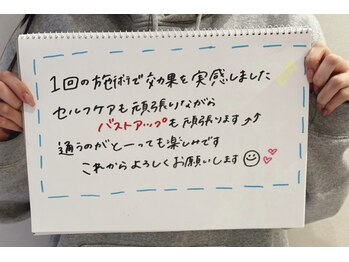 1回の施術で効果を実感しました
セルフケアも頑張りながら
バストアップも頑張ります⤴⤴
通うのがとーっても楽しみです
これからよろしくお願いします☺♡♡